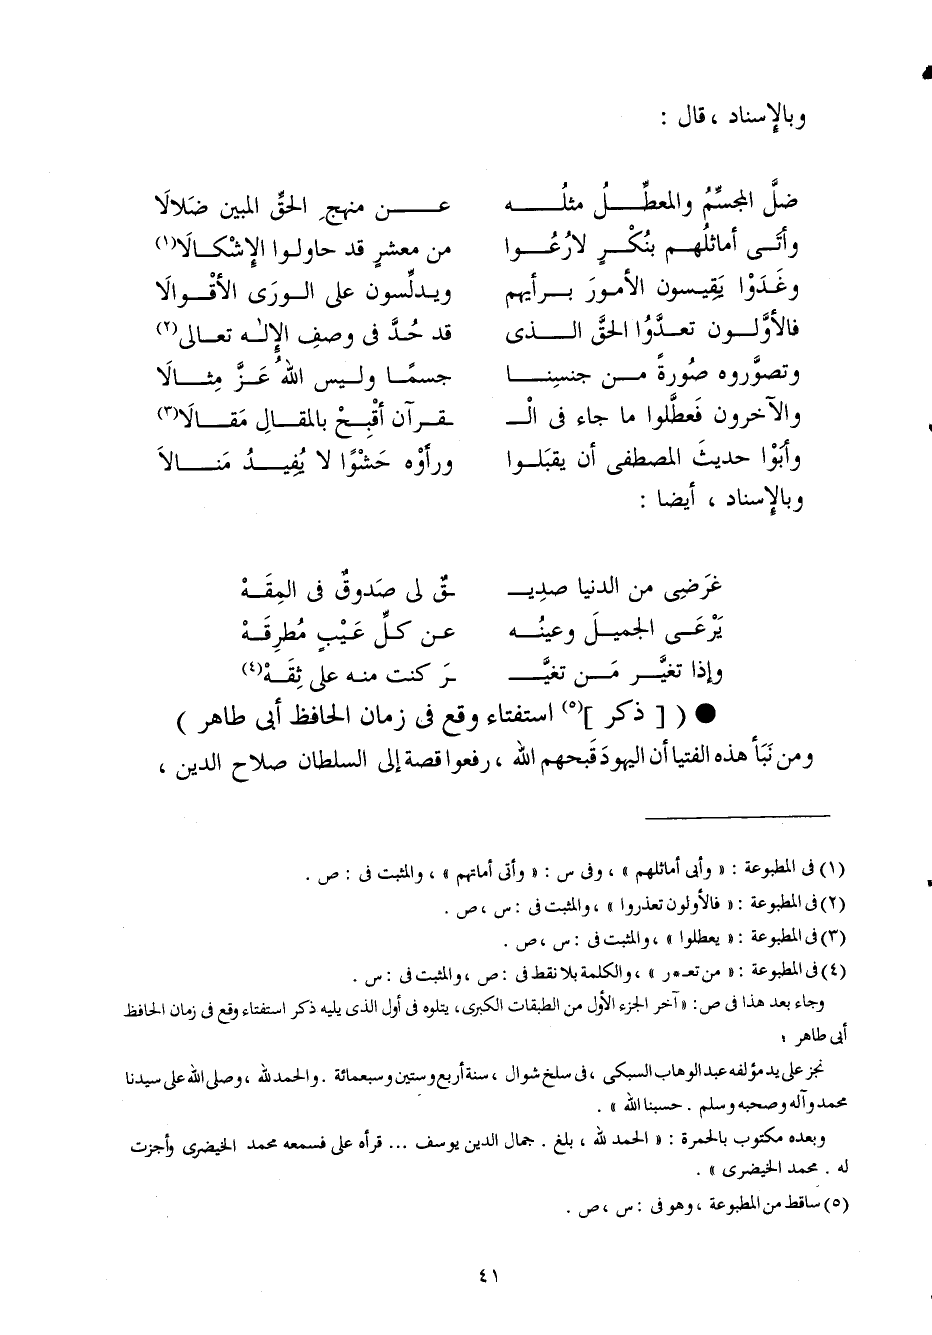 وبالإسناد ، قال :
ضلَّ المجسِّمُ والمعطِّلُ مثلُه عن منهجِ الحقِّ المبين ضَلالَا
وأتَى أماثلُهم بنُكْرٍ لارُعُوا من معشرٍ قد حاولوا الإشْكالَا(١)
وغَدَوْا يَقِيسون الأمورَ برأيهم ويدلِّسون على الورَى الأقْوالَا
فالأوَّلون تعدَّوُا الحقَّ الذى قد حُدَّ فى وصفِ الإلٰه تعالى(٢)
وتصوَّروه صُورةً من جنسِنا جسمًا وليس اللهُ عَزَّ مِثالَا
والآخرون فَعطَّلوا ما جاء فى الْـ ـقرآن أقْبِحْ بالمقالِ مَقالَا(٣)
وأبَوْا حديثَ المصطفى أن يقبَلوا ورأَوْه حَشْوًا لا يُفيدُ مَنالَا
وبالإسناد ، أيضا :
غَرَضِى من الدنيا صدِيـ ـقٌ لى صَدوقٌ فى المِقَهْ
يَرْعَى الجميلَ وعينُه عن كلِّ عَيْبٍ مُطرِقَهْ
وإذا تغيَّر مَن تغيَّـ ـرَ كنت منه على ثِقَهْ(٤)
● ( [ ذكر ](٥) استفتاء وقع فى زمان الحافظ أبى طاهر )
ومن نَبَأ هذه الفتيا أن اليهودَ قَبحهم الله ، رفعوا قصة إلى السلطان صلاح الدين ،
(١) فى المطبوعة : « وأبى أماثلهم » ، وفى س : « وأتى أماتهم » ، والمثبت فى : ص .
(٢) فى المطبوعة : « فالأولون تعذروا » ، والمثبت فى : س ، ص .
(٣) فى المطبوعة : « يعطلوا » ، والمثبت فى : س ، ص .
(٤) فى المطبوعة : « من تعـ*ر » ، والكلمة بلا نقط فى : ص ، والمثبت فى : س .
وجاء بعد هذا فى ص : « آخر الجزء الأول من الطبقات الكبرى ، يتلوه فى أول الذى يليه ذكر استفتاء وقع فى زمان الحافظ
أبى طاهر ؛
نجز على يد مؤلفه عبد الوهاب السبكى ، فى سلخ شوال ، سنة أربع وستين وسبعمائة . والحمد لله ، وصلى الله على سيدنا
محمد وآله وصحبه وسلم . حسبنا الله » .
وبعده مكتوب بالحمرة : « الحمد لله ، بلغ . جمال الدين يوسف ... قرأه على فسمعه محمد الخيضرى وأجزت
له . محمد الخيضرى » .
(٥) ساقط من المطبوعة ، وهو فى : س ، ص .
٤١